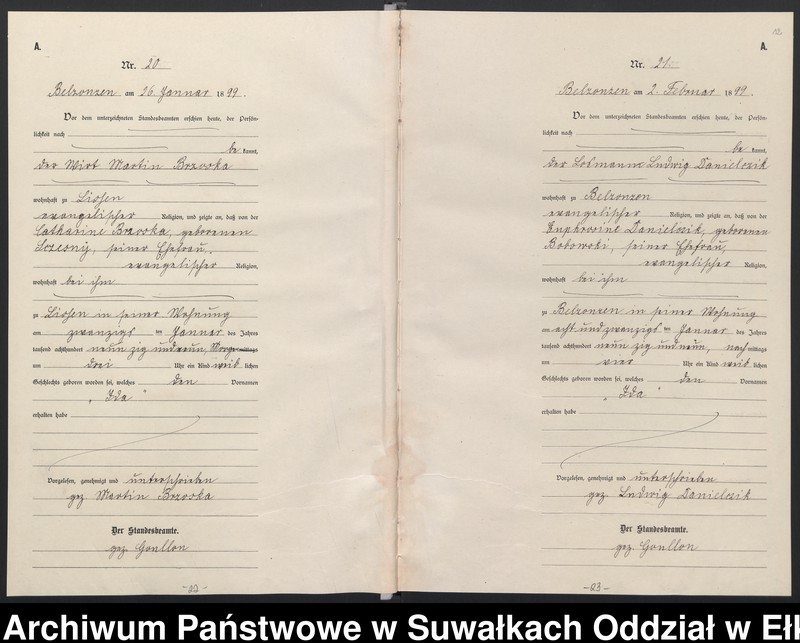 A.
Nr. 20
Belzonzen am 26. Januar 1899.
Vor dem unterzeichneten Standesbeamten erschien heute, der Persön-
lichkeit nach
be kannt,
der Wirt Martin Brzoska
wohnhaft zu Lissen
evangelischer Religion, und zeigte an, daß von der
Catharine Brzoska, geborenen
Sczesny, seiner Ehefrau,
evangelischer Religion,
wohnhaft bei ihm
zu Lissen in seiner Wohnung
am zwanzigsten Januar des Jahres
tausend achthundert neunzig und neun, Morgens
um drei Uhr ein Kind weiblichen
Geschlechts geboren worden sei, welches den Vornamen
"Ida"
erhalten habe
Vorgelesen, genehmigt und unterschrieben
gez. Martin Brzoska
Der Standesbeamte.
gez. Goullon
-22-
A.
Nr. 21.
Belzonzen am 2. Februar 1899.
Vor dem unterzeichneten Standesbeamten erschien heute, der Persön-
lichkeit nach
be kannt,
der Losmann Ludwig Danielczik
wohnhaft zu Belzonzen
evangelischer Religion, und zeigte an, daß von der
Danielczik, geborenen
Bobowski, seiner Ehefrau,
evangelischer Religion,
wohnhaft bei ihm
zu Belzonzen in seiner Wohnung
am acht und zwanzigsten Januar des Jahres
tausend achthundert neunzig und neun, nachmittags
um vier Uhr ein Kind weiblichen
Geschlechts geboren worden sei, welches den Vornamen
"Ida"
erhalten habe
Vorgelesen, genehmigt und unterschrieben
gez. Ludwig Danielczik
Der Standesbeamte.
gez. Goullon
-23-
Archiwum Państwowe w Suwałkach Oddział w Eł